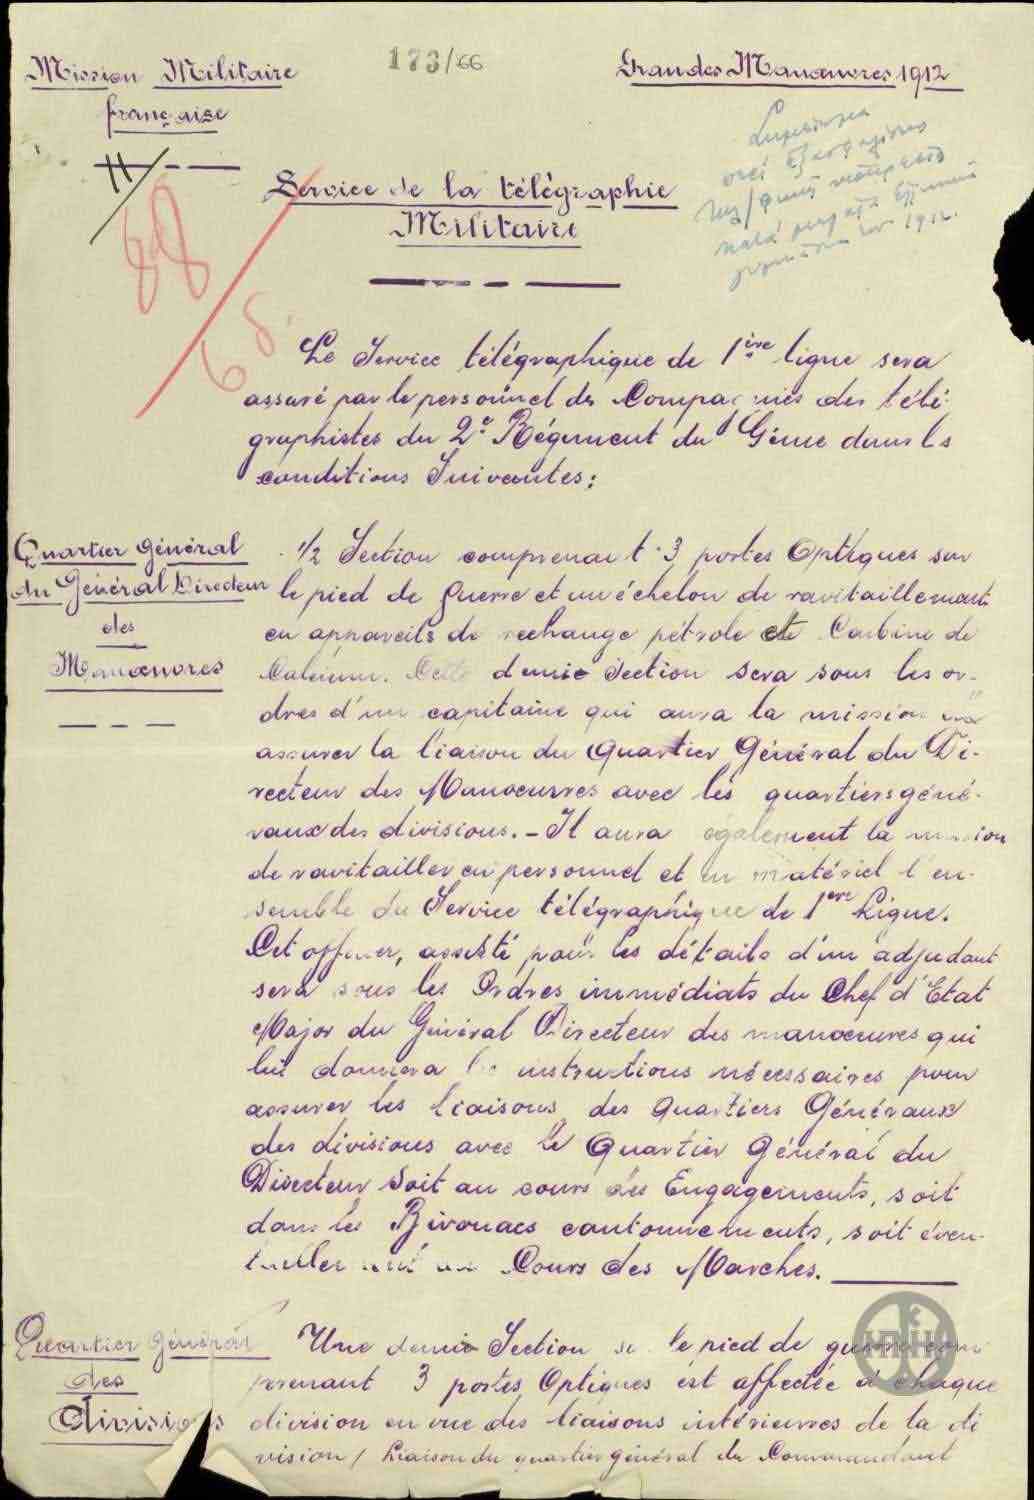 Mission Militaire
française
173/66
Grandes Manœuvres 1912
Service de la télégraphie
Militaire
κατά
1912.
Le Service télégraphique de 1ère ligne sera
assuré par le personnel des Compagnies des télé-
graphistes du 2e Régiment du Génie dans les
conditions Suivantes:
Quartier Général
du Général Directeur
des
Manœuvres
1/2 Section comprenant 3 postes Optiques sur
le pied de guerre et un échelon de ravitaillement
en appareils de rechange pétrole et Carbure de
Calcium. Cette demie Section sera sous les or-
dres d'un capitaine qui aura la mission
assurer la liaison du Quartier Général du Di-
recteur des Manoeuvres avec les quartiers géné-
raux des divisions. - Il aura également la mission
de ravitailler en personnel et en matériel l'en-
semble du Service télégraphique de 1ere Ligne.
Cet officier, assisté pour les détails d'un adjudant
sera sous les Ordres immédiats du Chef d'Etat
Major du Général Directeur des manoeuvres qui
lui donnera les instructions nécessaires pour
assurer les liaisons des Quartiers Généraux
des divisions avec le Quartier Général du
Directeur Soit au cours des Engagements, soit
dans les Bivouacs cantonnements, soit éven-
tuellement au Cours des Marches.
Quartier Général
des
divisions
Une demie Section sur le pied de guerre com
prenant 3 postes Optiques est affectée à chaque
division en vue des liaisons intérieures de la di
vision / Liaison du quartier général du Commandant